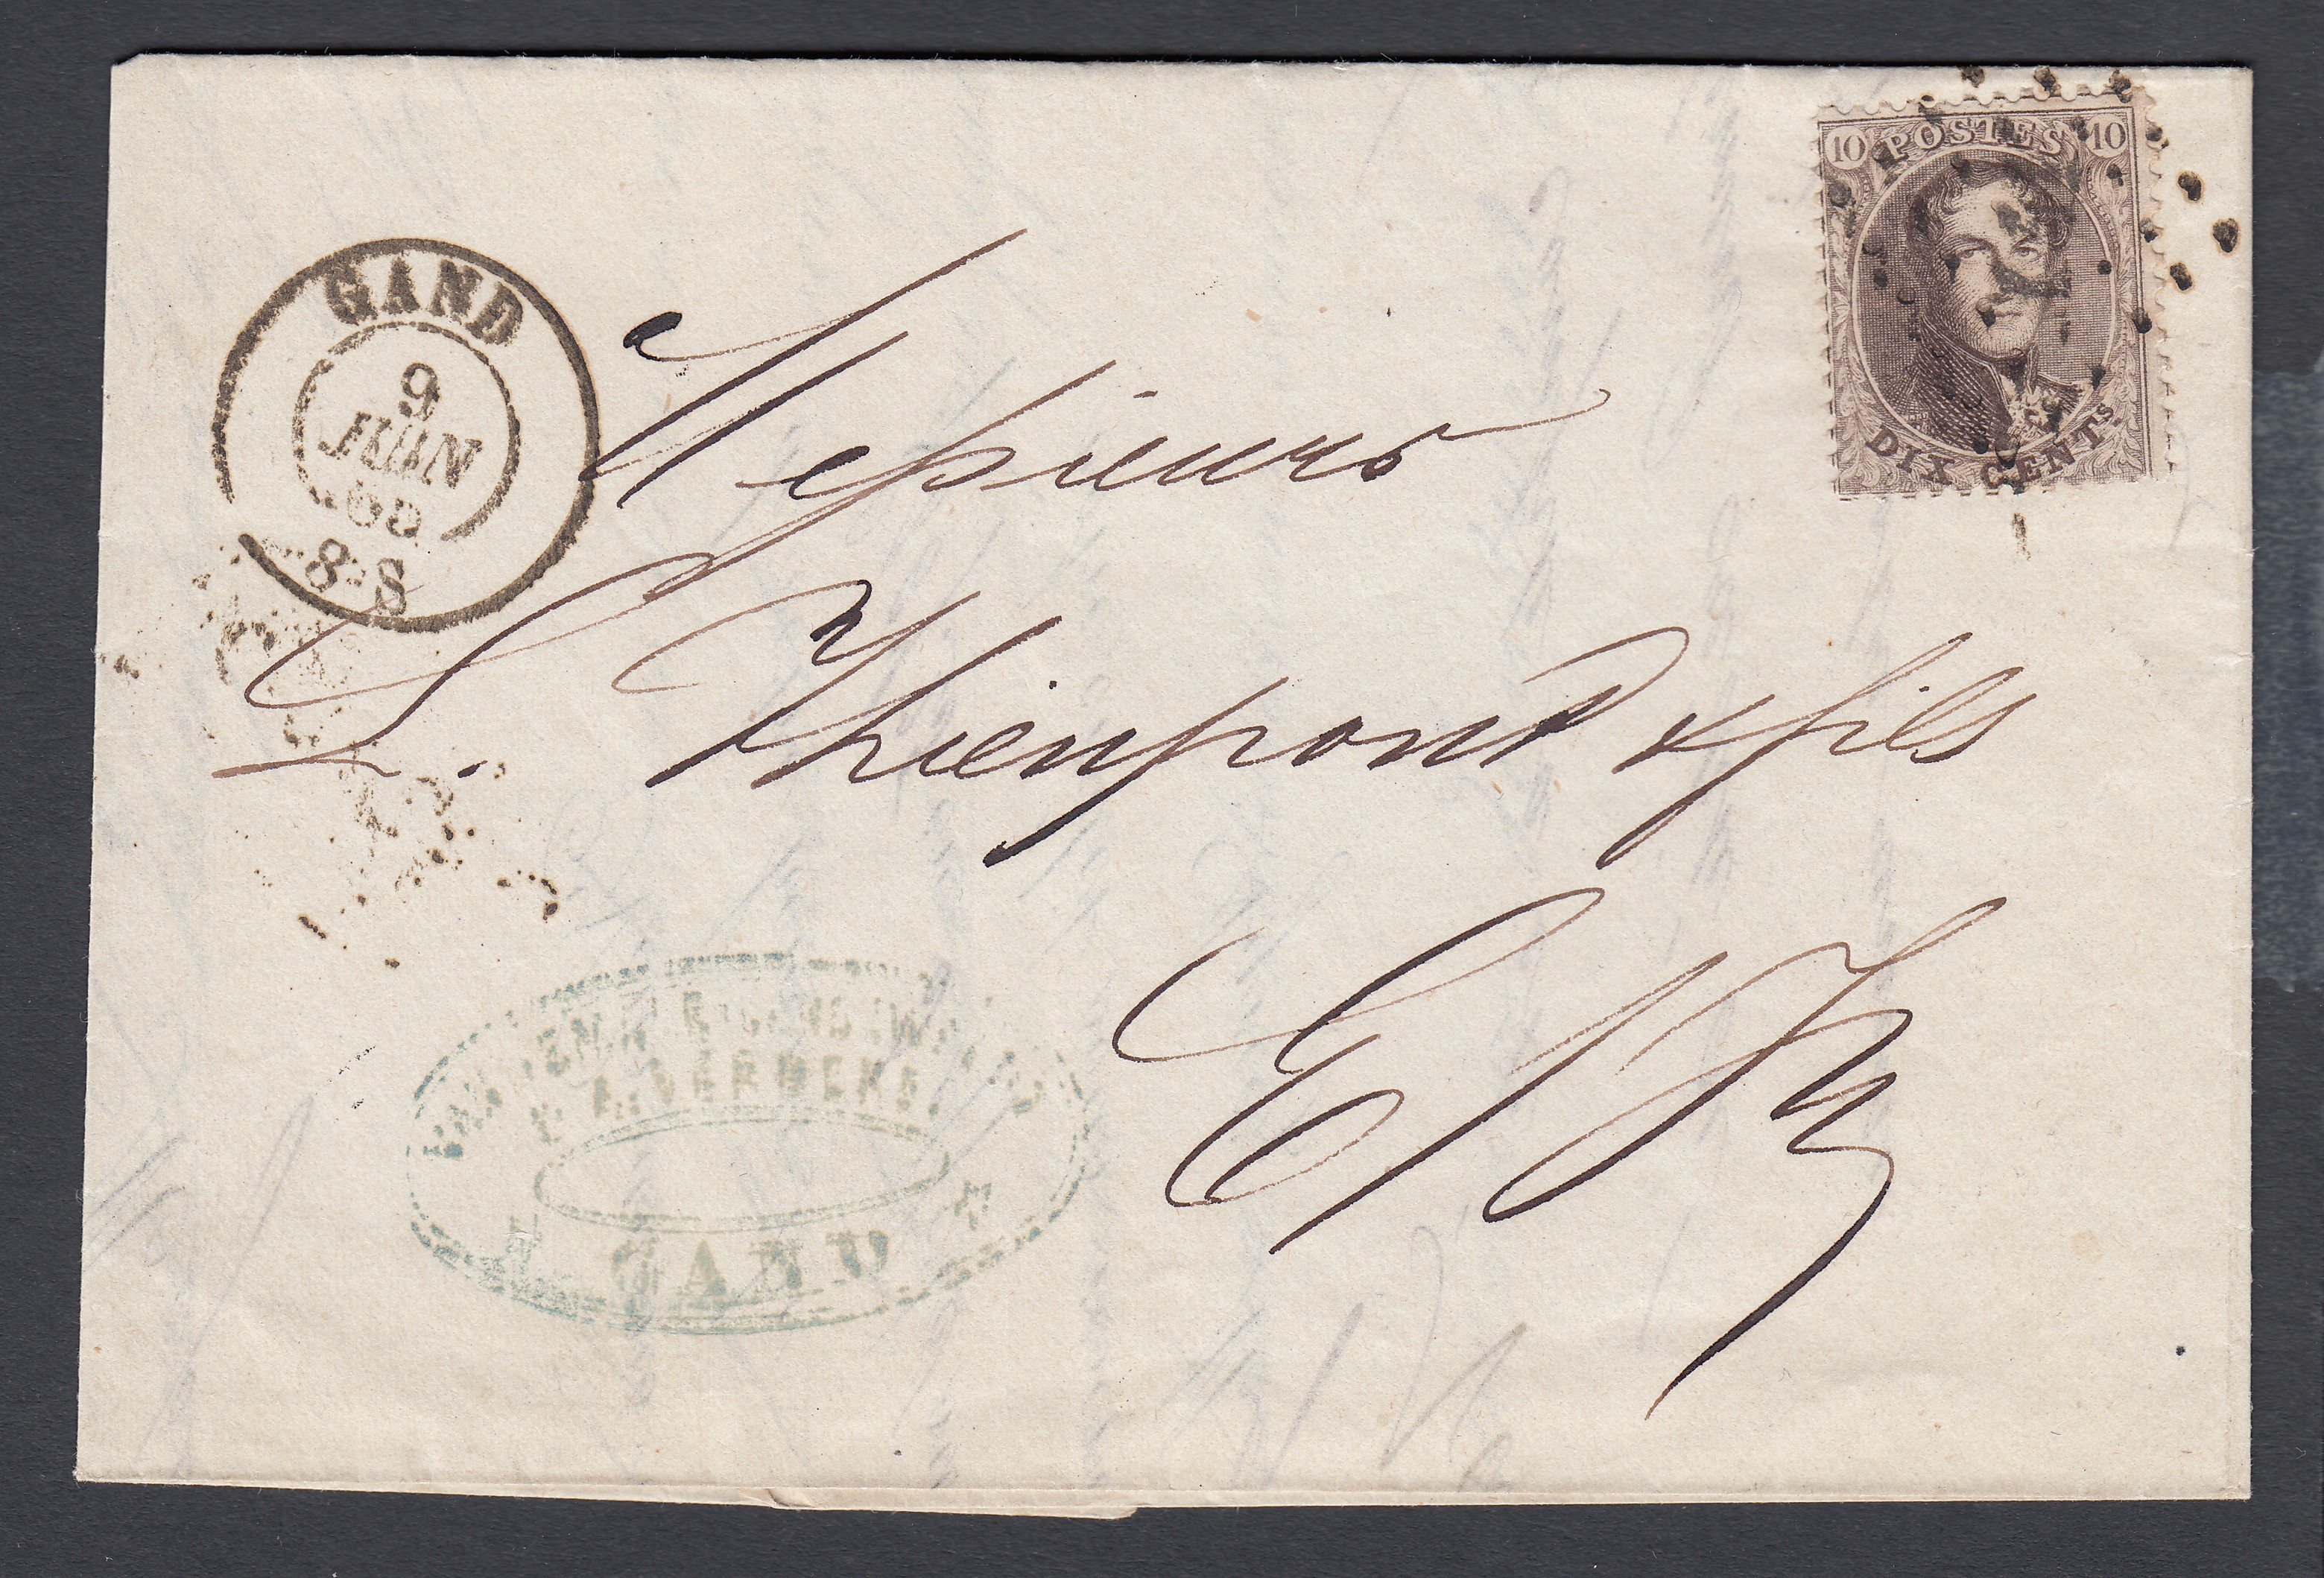 10 POSTES 10
DIX CENTS
GAND
9
JUIN
65
8-S
Messieurs
L. Thienpont & fils
E/V
GAND